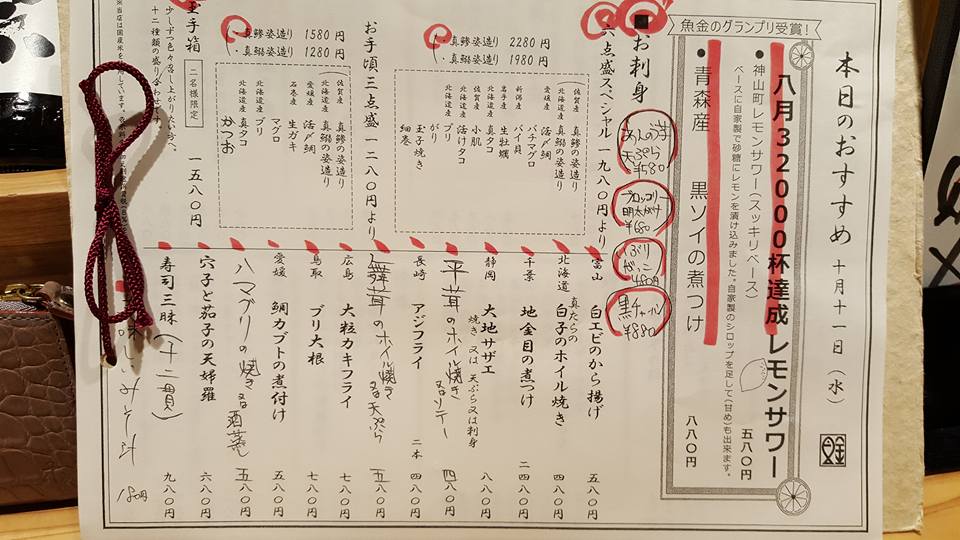 本日のおすすめ 十月十一日(水)
魚金のグランプリ受賞!
八月32000杯達成レモンサワー
・神山町レモンサワー(スッキリベース) 五八〇円
ベースに自家製で砂糖にレモンを漬け込みました。自家製のシロップを足して(甘め)も出来ます。
・青森産 黒ソイの煮つけ 八八〇円
■お刺身
天ぷら ¥580
ブロッコリー 明太焼 ¥680
いぶりがっこ 480円
¥880
六点盛スペシャル 一九八〇円より
・真鯵姿造り 2280円
・真鰯姿造り 1980円
佐賀産 真鯵の姿造り
北海道産 真鰯の姿造り
愛媛産 活〆鯛
バチマグロ
新潟産 バイ貝
岩手産 生牡蠣
小肌
北海道産 真タコ
北海道産 活けタコ
北海道産 ブリ
がり
玉子焼き
細巻
お手頃三点盛 一二八〇円より
・真鯵姿造り 1580円
・真鰯姿造り 1280円
佐賀産 真鯵の姿造り
北海道産 真鰯の姿造り
愛媛産 活〆鯛
石巻産 生ガキ
マグロ
北海道産 ブリ
北海道産 真タコ
かつお
玉手箱 二名様限定 一五八〇円
少しずつ色々召し上がりたい方へ、
十二種類の盛り合わせです。
富山 白エビのから揚げ 五八〇円
北海道 真たらの白子のホイル焼き 四八〇円
千葉 地金目の煮つけ 二四八〇円
静岡 大地サザエ 焼き又は天ぷら又は刺身 八八〇円
平茸のホイル焼き 又はソテー 四八〇円
長崎 アジフライ 二本 四八〇円
舞茸のホイル焼き 又は天ぷら 五八〇円
広島 大粒カキフライ 七八〇円
鳥取 ブリ大根 七八〇円
愛媛 鯛カブトの煮付け 五八〇円
ハマグリの焼き 又は酒蒸し 五八〇円
穴子と茄子の天婦羅 六八〇円
寿司三昧(十二貫) 九八〇円
みそ汁 180円